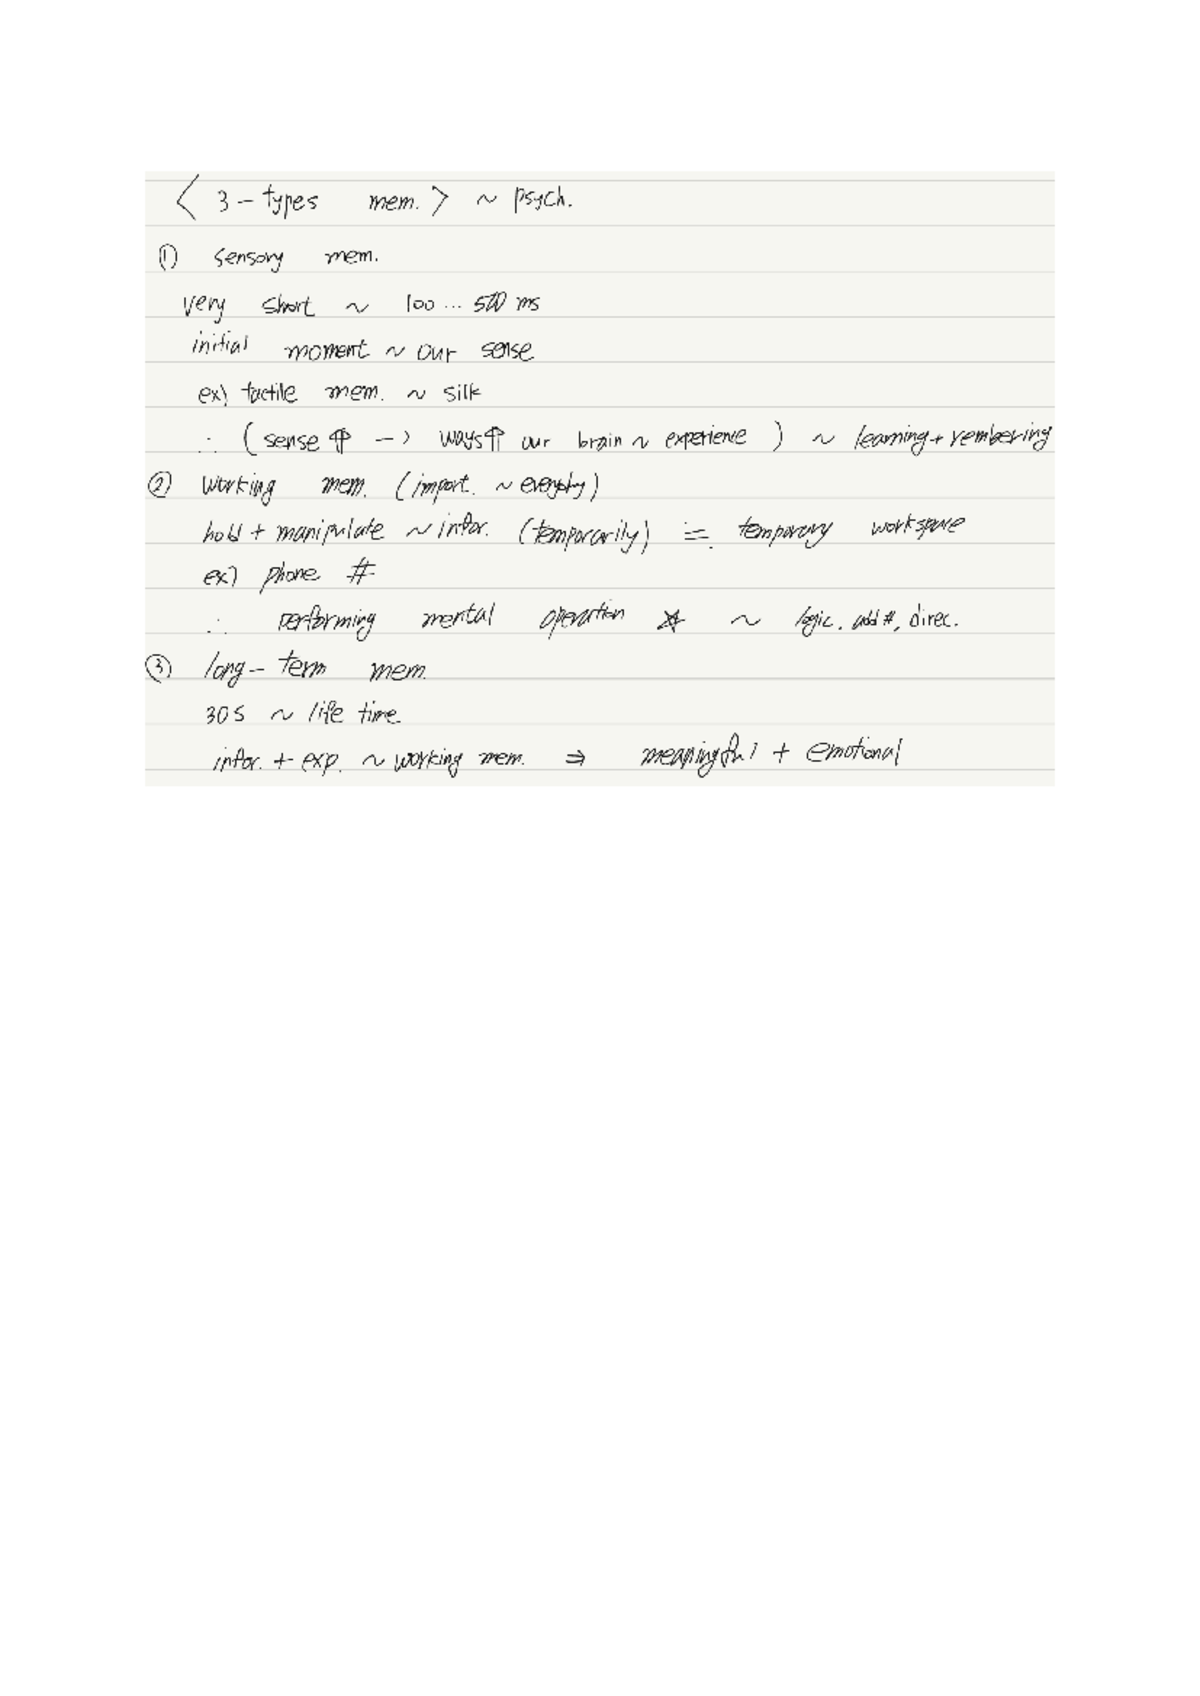 < 3 - types mem. > ~ psych.
① sensory mem.
very short ~ 100 ... 500 ms
initial moment ~ our sense
ex) tactile mem. ~ silk
∴ ( sense ⇑ -> ways ⇑ our brain ~ experience ) ~ learning + rembering
② working mem. (import. ~ everyday)
hold + manipulate ~ infor. (temporarily) ≒ temporary workspace
ex) phone #
∴ performing mental operation ☆ ~ logic. add #, direc.
③ long - term mem.
30s ~ life time.
infor. + exp. ~ working mem. ⇒ meaningful + emotional